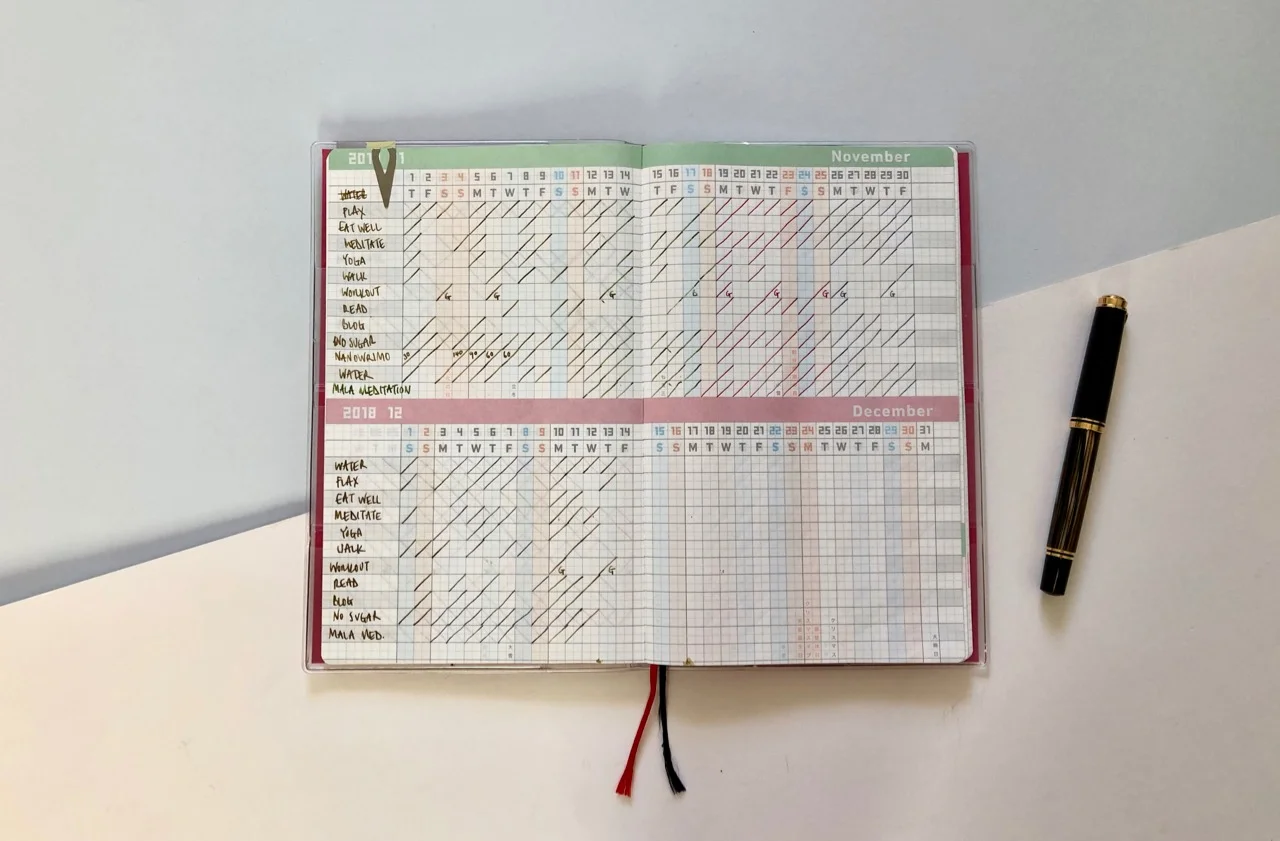 November
1 2 3 4 5 6 7 8 9 10 11 12 13 14 15 16 17 18 19 20 21 22 23 24 25 26 27 28 29 30
T F S S M T W T F S S M T W T F S S M T W T F S S M T W T F
FLAX
EAT WELL
MEDITATE
YOGA
WALK
WORKOUT G G G G G G G G G
READ
BLOG
NO SUGAR
NANOWRIMO 30 140 90 60 60
WATER
MALA MEDITATION
2018 12 December
1 2 3 4 5 6 7 8 9 10 11 12 13 14 15 16 17 18 19 20 21 22 23 24 25 26 27 28 29 30 31
S S M T W T F S S M T W T F S S M T W T F S S M T W T F S S M
WATER
FLAX
EAT WELL
MEDITATE
YOGA
WALK
WORKOUT G G
READ
BLOG
NO SUGAR
MALA MED.